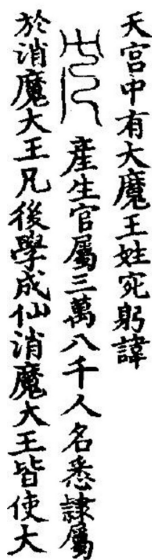 天宮中有大魔王姓宛躬諱
産生官屬三萬八千人名悉隸屬
於消魔大王凡後學成仙消魔大王皆使大